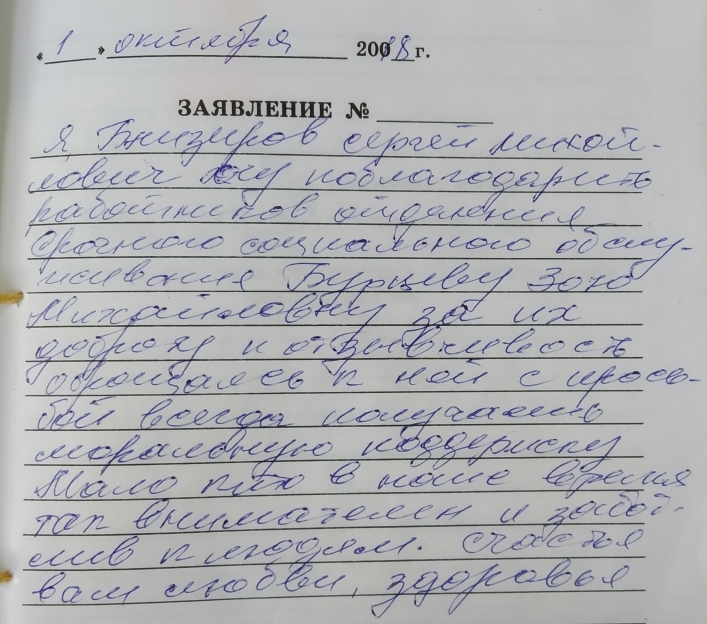 « 1 » октября 2008 г.
ЗАЯВЛЕНИЕ №
Я, Сергей Михай-
лович хочу поблагодарить
работников отделения
срочного социального обслу-
живания Бурцеву Зою
Михайловну за их
доброту и отзывчивость
обращаясь к ней с прось-
бой всегда получаешь
моральную поддержку
Мало кто в наше время
так внимателен и забот-
лив к людям. Счастья
вам любви, здоровья